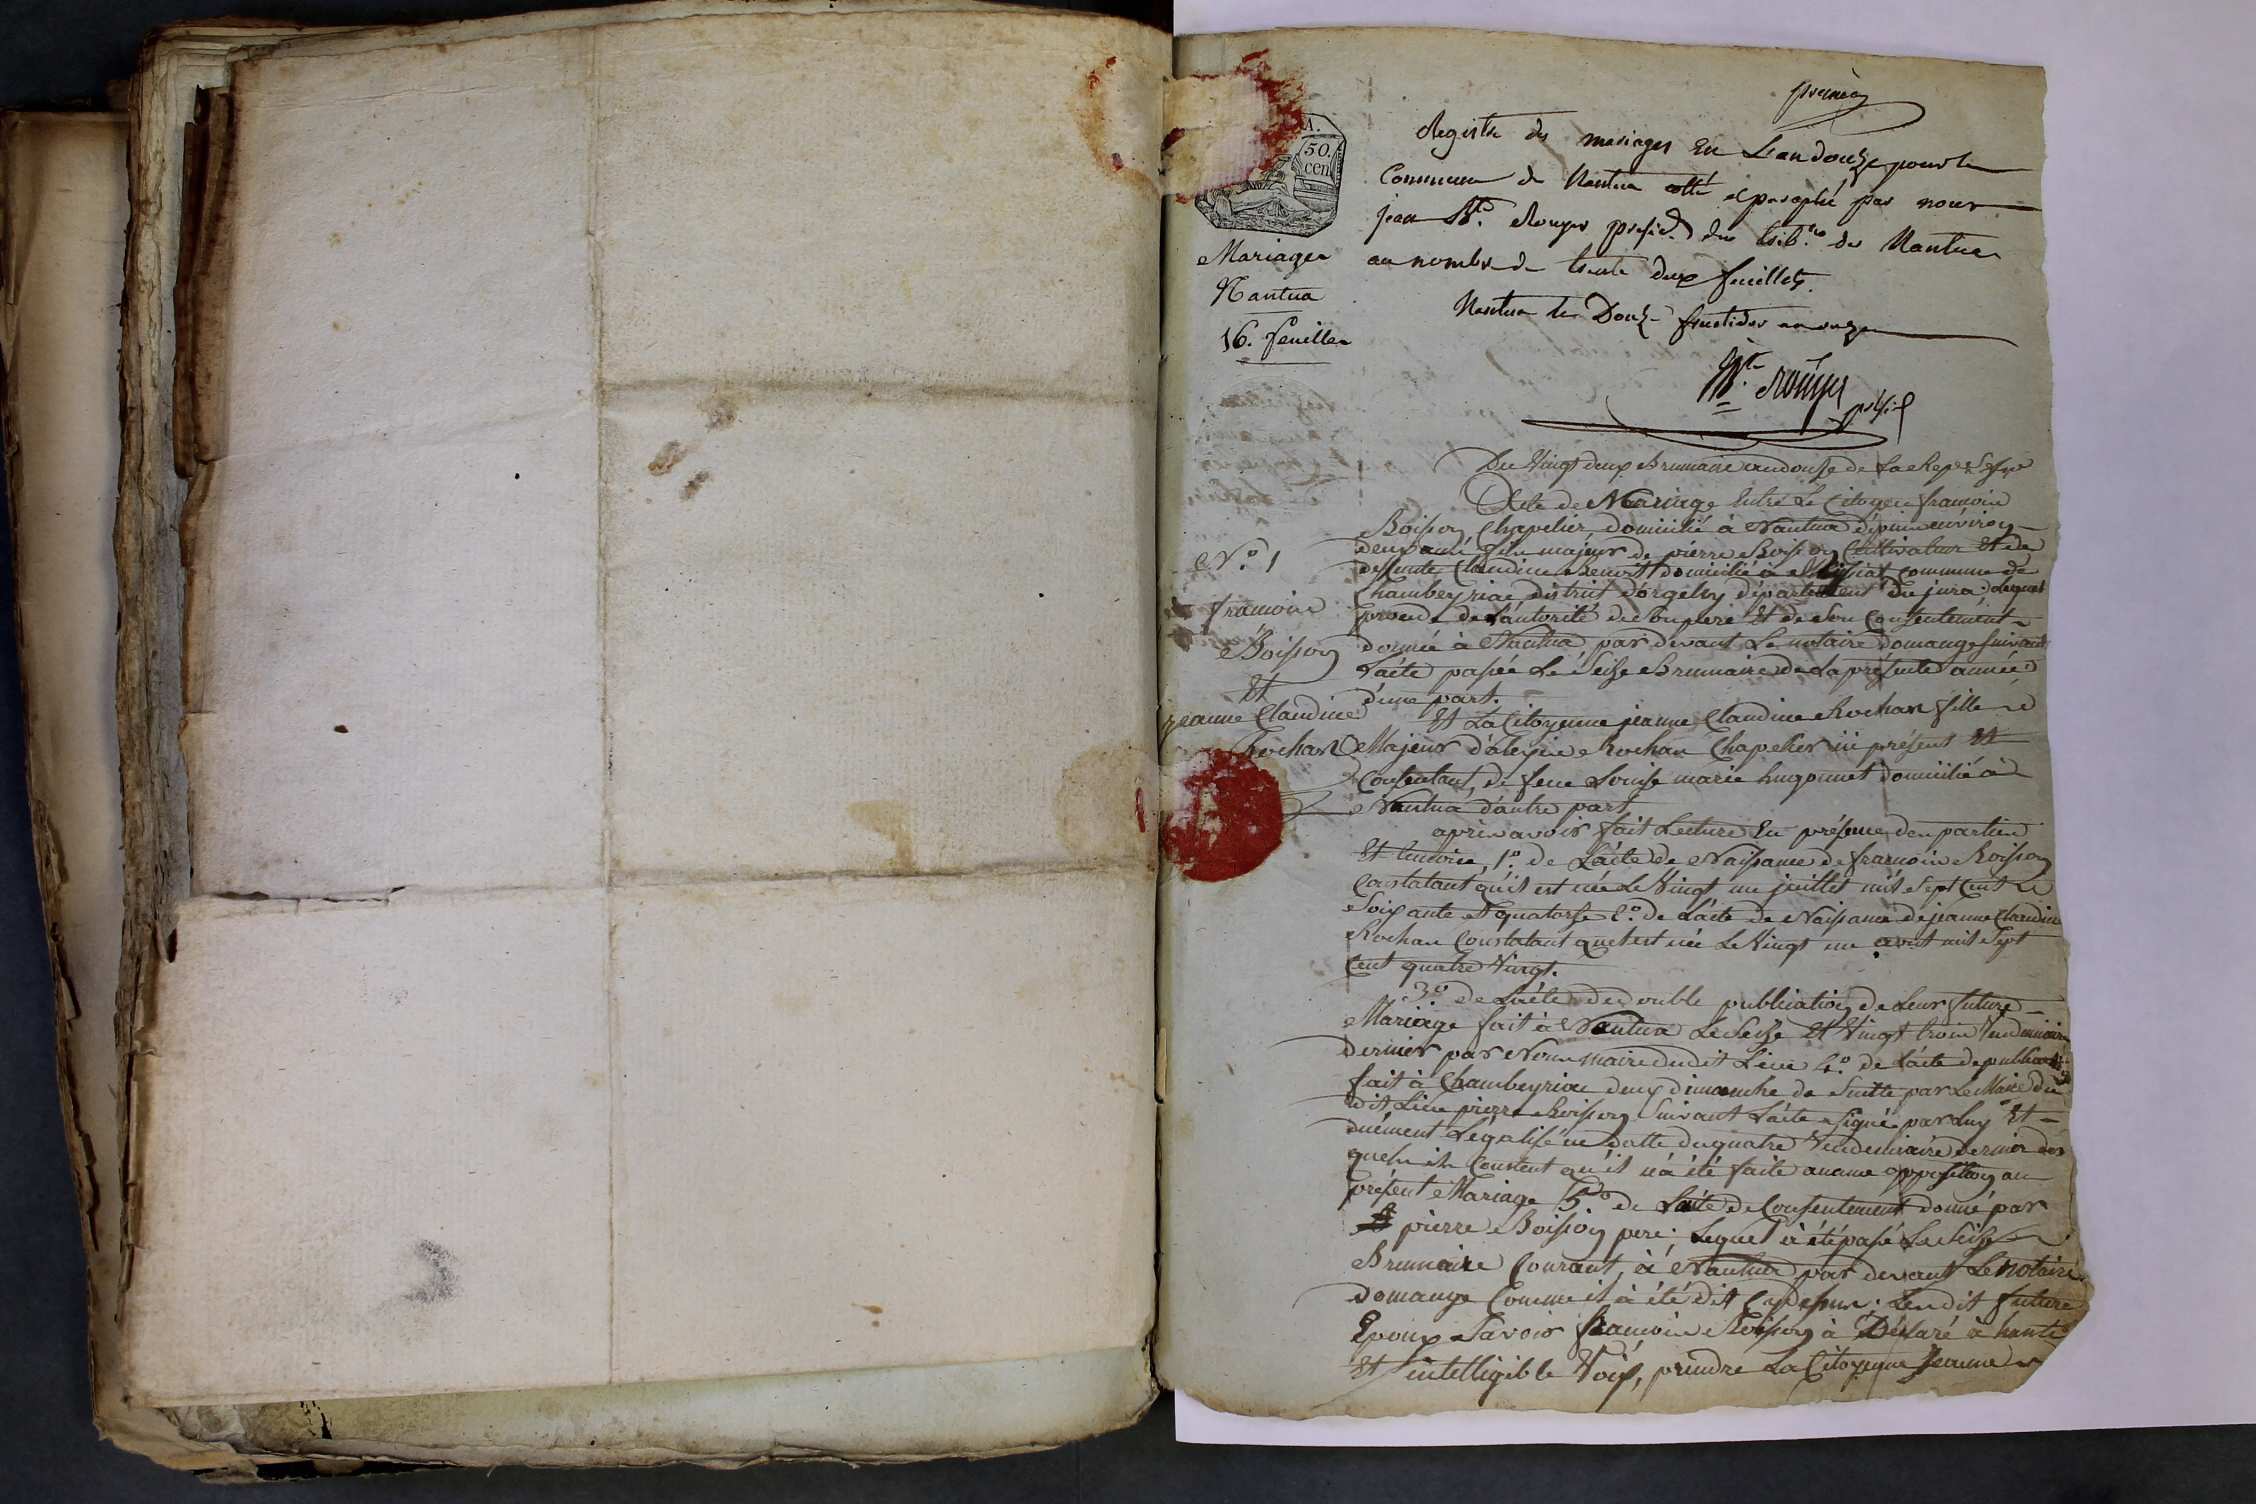 premier
A.
50.
cen
Registre des mariages En L'an douze pour la
Commune de Nantua cotté et paraphé par nous
jean Bte. Rouyer presid. du trib.al de Nantua
au nombre de trente deux feuillets.
Nantua le Douze fructidor an onze
Mariages
Nantua
16. feuilles
Bte. Rouyer
presid
Du Vingt deux Brumaire an douse de La Rep.
Acte de Mariage Entre Le Citoyen francois
Boisson Chapelier domicilié à Nantua dépuis environ
deux ans fils majeur de pierre Boisson Cultivateur Et de
deffunte Claudine Benoit domicilié à commune de
Chambeyriac district d'orgeley département du jura
procede de L'autorité de Son pere Et de Son Consentement
donnée à Nantua par devant Le notaire domange suivant
L'acte passée Le Seize Brumaire de La présente année
d'une part.
N.o 1
francois
Boisson
Et
jeanne Claudine
Rochan
Et La Citoyenne jeanne Claudine Rochan fille
Majeur d'alexis Rochan Chapelier ici présent Et
Consentant, de feue Louise marie hugonnet domicilié à
Nantua d'autre part
aprés avoir fait Lecture En présence des parties
Et temoins, 1.o de L'acte de Naissance de francois Boisson
Constatant qu'il est née Le Vingt un juillet mil Sept Cent
Soixante et quatorse 2.o de L'acte de Naissance de jeanne Claudine
Rochan Constatant quel est née Le Vingt un avout mil Sept
Cent quatre Vingt.
3.o de L'acte de double publication de Leur future
Mariage fait à Nantua Le Seize Et Vingt trois Vendemiaire
dernier par Nous maire dudit Lieu 4.o de L'acte de publication
fait à Chambeyriac deux dimanche de Suitte par Le Maire du
dit Lieu pierre Boisson Suivant L'acte Signé par Luy Et
duëment Légalisé en datte du quatre Vendemiaire dernier des
quels il Constent qu'il n'a été faite aucune opposition au
présent Mariage 5.o de L'acte de Consentement donné par
pierre Boisson pere; Lequel à été passé Le Seize
Brumaire Courant, à Nantua par devant Le notaire
domange Comme il à été dit Cy dessus. Lesdit future
Epoux Savoir francois Boisson à Déclaré à haute
Et intelligible Voix, prendre La Citoyenne Jeanne